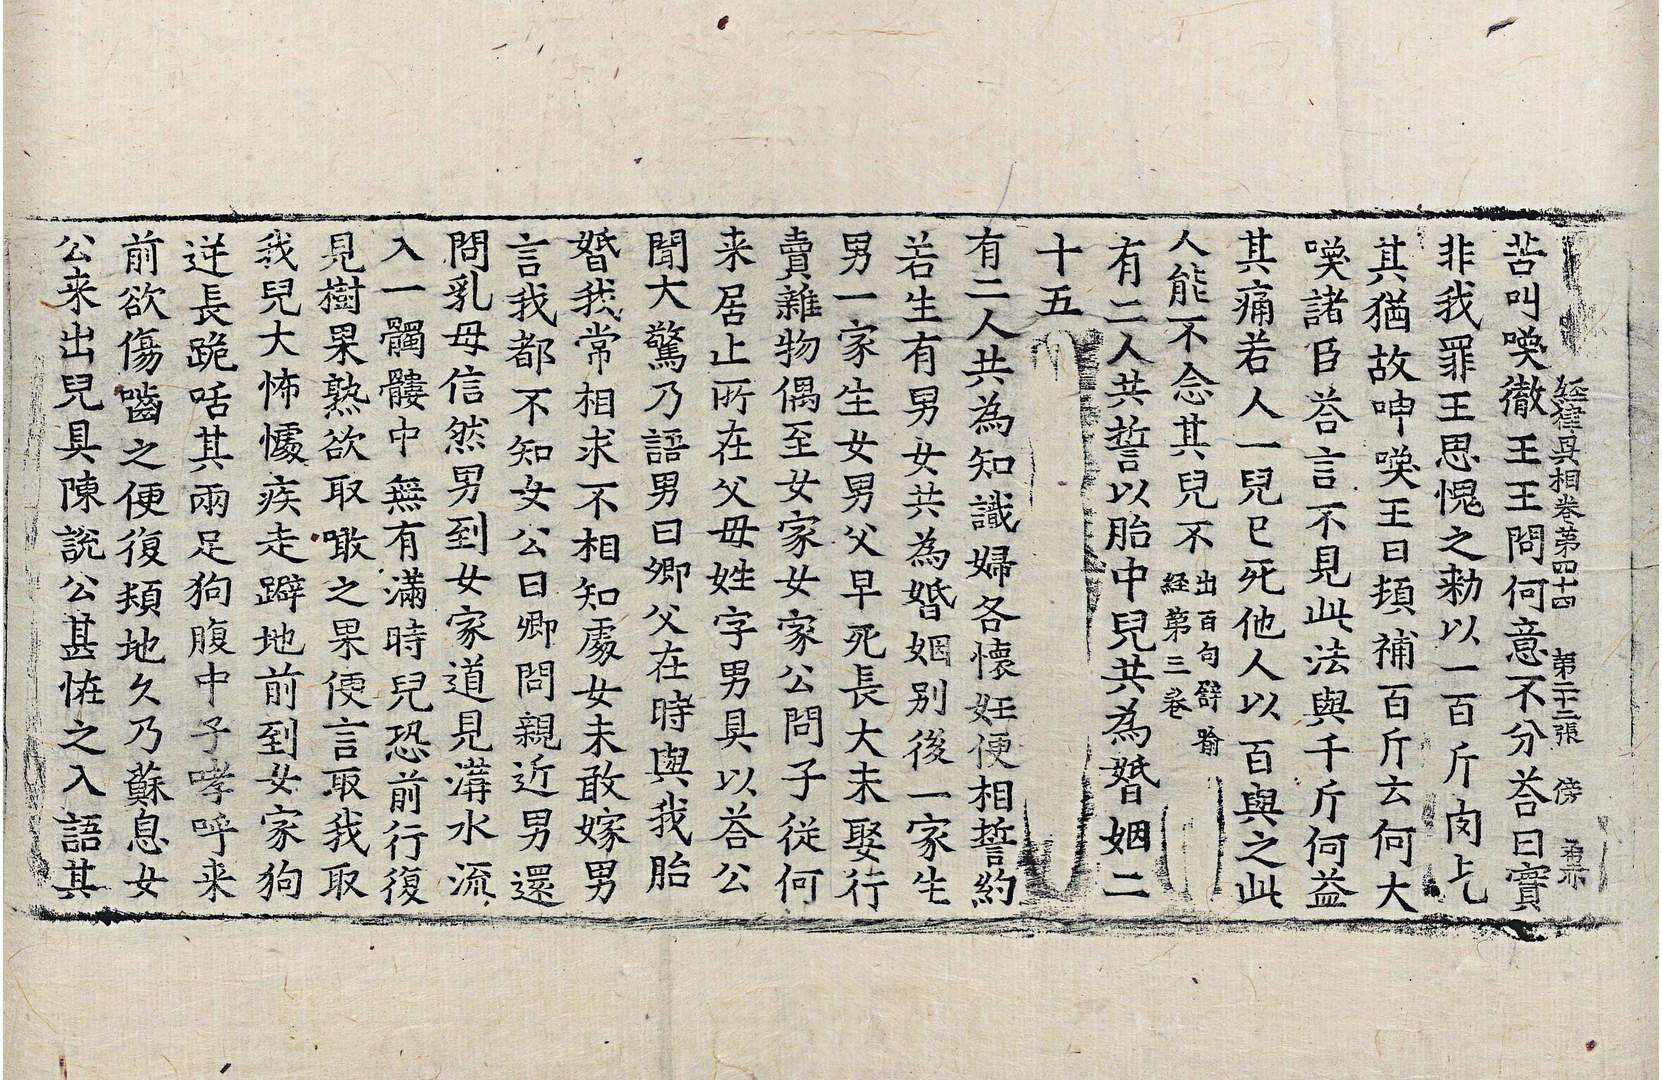 経律異相巻第四十四 第二十二張 傍
苦叫喚徹王王問何意不分荅曰實
非我罪王思愧之勑以一百斤肉上
其猶故呻喚王曰頬補百斤云何大
喚諸臣荅言不見此法與千斤何益
其痛若人一兒已死他人以百與之此
人能不念其兒不 出百句辟喻
経第三巻
有二人共誓以胎中兒共為婚姻二
十五
有二人共為知識婦各懷妊便相誓約
若生有男女共為婚姻別後一家生
男一家生女男父早死長大未娶行
賣雜物偶至女家女家公問子從何
来居止所在父母姓字男具以荅公
聞大驚乃語男曰卿父在時與我胎
婚我常相求不相知處女未敢嫁男
言我都不知女公曰卿問親近男還
問乳母信然男到女家道見溝水流
入一髑髏中無有滿時兒恐前行復
見樹果熟欲取噉之果便言取我取
我兒大怖懅疾走躃地前到女家狗
逆長跪咶其兩足狗腹中子哮呼来
前欲傷嚙之便復頬地久乃蘇息女
公来出兒具陳說公甚恠之入語其